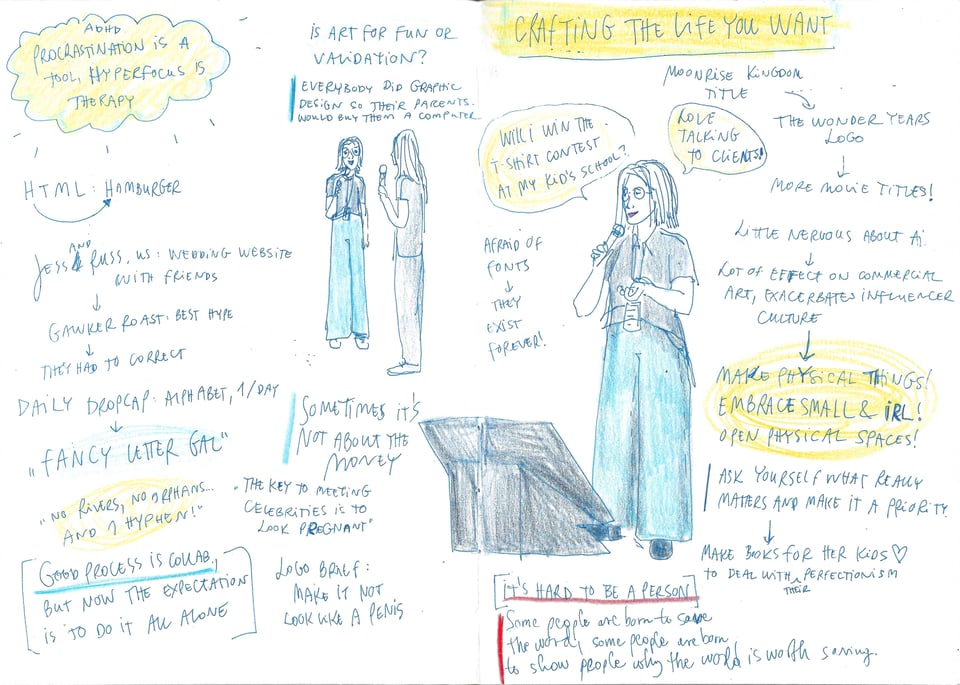 ADHD
PROCRASTINATION IS A
TOOL, HYPERFOCUS IS
THERAPY
HTML: HAMBURGER
JESS AND RUSS.US: WEDDING WEBSITE
WITH FRIENDS
GAWKER ROAST: BEST HYPE
THEY HAD TO CORRECT
DAILY DROPCAP: ALPHABET, 1/DAY
"FANCY LETTER GAL"
"NO RIVERS, NO ORPHANS...
AND 1 HYPHEN!"
GOOD PROCESS IS COLLAB,
BUT NOW THE EXPECTATION
IS TO DO IT ALL ALONE
IS ART FOR FUN OR
VALIDATION?
EVERYBODY DID GRAPHIC
DESIGN SO THEIR PARENTS
WOULD BUY THEM A COMPUTER
SOMETIMES IT'S
NOT ABOUT THE
MONEY
"THE KEY TO MEETING
CELEBRITIES IS TO
LOOK PREGNANT"
LOGO BRIEF:
MAKE IT NOT
LOOK LIKE A PENIS
CRAFTING THE LIFE YOU WANT
WILL I WIN THE
T-SHIRT CONTEST
AT MY KID'S SCHOOL?
LOVE
TALKING
TO CLIENTS!
AFRAID OF
FONTS
THEY
EXIST
FOREVER!
MOONRISE KINGDOM
TITLE
THE WONDER YEARS
LOGO
MORE MOVIE TITLES!
LITTLE NERVOUS ABOUT Ai
LOT OF EFFECT ON COMMERCIAL
ART, EXACERBATES INFLUENCER
CULTURE
MAKE PHYSICAL THINGS!
EMBRACE SMALL & iRL!
OPEN PHYSICAL SPACES!
ASK YOURSELF WHAT REALLY
MATTERS AND MAKE IT A PRIORITY.
MAKE BOOKS FOR HER KIDS
TO DEAL WITH THEIR PERFECTIONISM
IT'S HARD TO BE A PERSON
Some people are born to save
the world, some people are born
to show people why the world is worth saving.